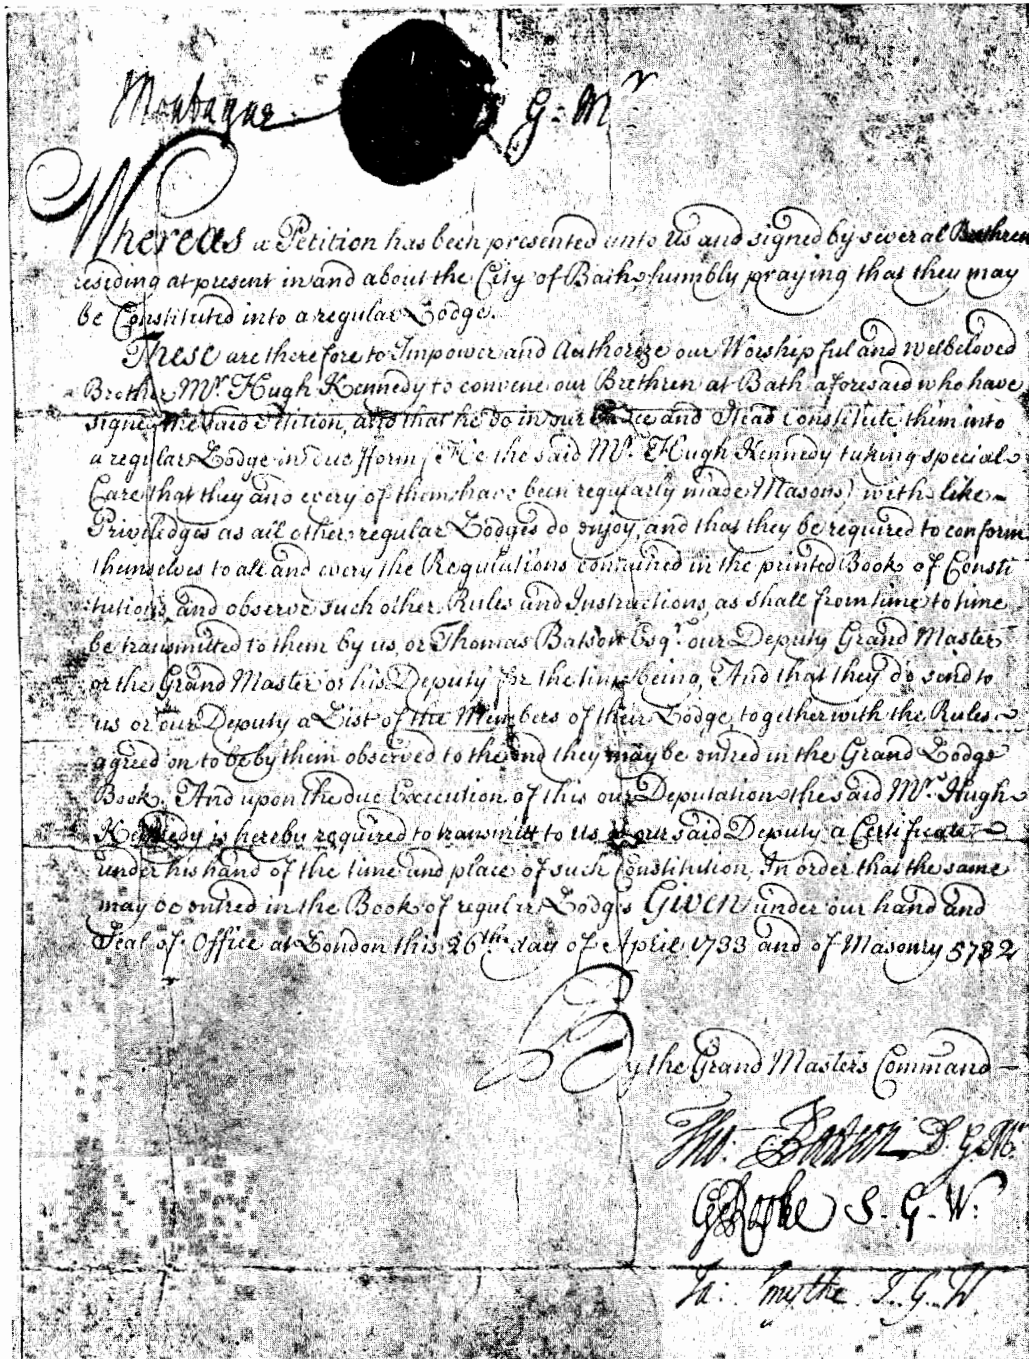 Montague G: Mr
Whereas a Petition has been presented unto Us and signed by several Brethren
residing at present in and about the City of Bath, humbly praying that they may
be Constituted into a regular Lodge.
These are therefore to Impower and Authorize our Worshipful and Welbeloved
Brother Mr. Hugh Kennedy to convene our Brethren at Bath aforesaid who have
signed the said Petition, and that he do in our Place and Stead Constitute them into
a regular Lodge in due fform (He the said Mr. Hugh Kennedy taking special
Care that they and every of them have been regularly made Masons) with like
Priviledges as all other regular Lodges do enjoy, and that they be required to conform
themselves to all and every the Regulations contained in the printed Book of Consti
tutions, and observe such other Rules and Instructions, as shall from time to time
be transmitted to them by us, or Thomas Batson Esqr. our Deputy Grand Master
or the Grand Master or his Deputy for the time being, And that they do send to
us or our Deputy a List of the Members of their Lodge, together with the Rules
agreed on to be by them observed to the end they may be entred in the Grand Lodge
Book. And upon the due Execution of this our Deputation the said Mr. Hugh
Kennedy is hereby required to transmitt to Us or our said Deputy a Certificate
under his hand of the time and place of such Constitution, In order that the same
may be entred in the Book of regular Lodges Given under our hand and
Seal of Office at London this 26th day of April 1733 and of Masonry 5732
By the Grand Masters Command
Tho: Batson D. G. M.
G Rooke S. G. W.
Ja: Smythe J. G. W.